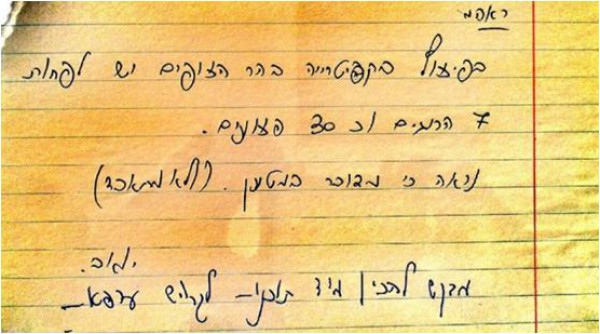 ראהמ
בפיגוע בקפיטרייה בהר הצופים יש לפחות
7 הרוגים וכ 30 פצועים.
נראה כי מדובר במטען. (לא מתאבד)
יואב.
מבקש להכין מיד תוכנית לגירוש ערפאת